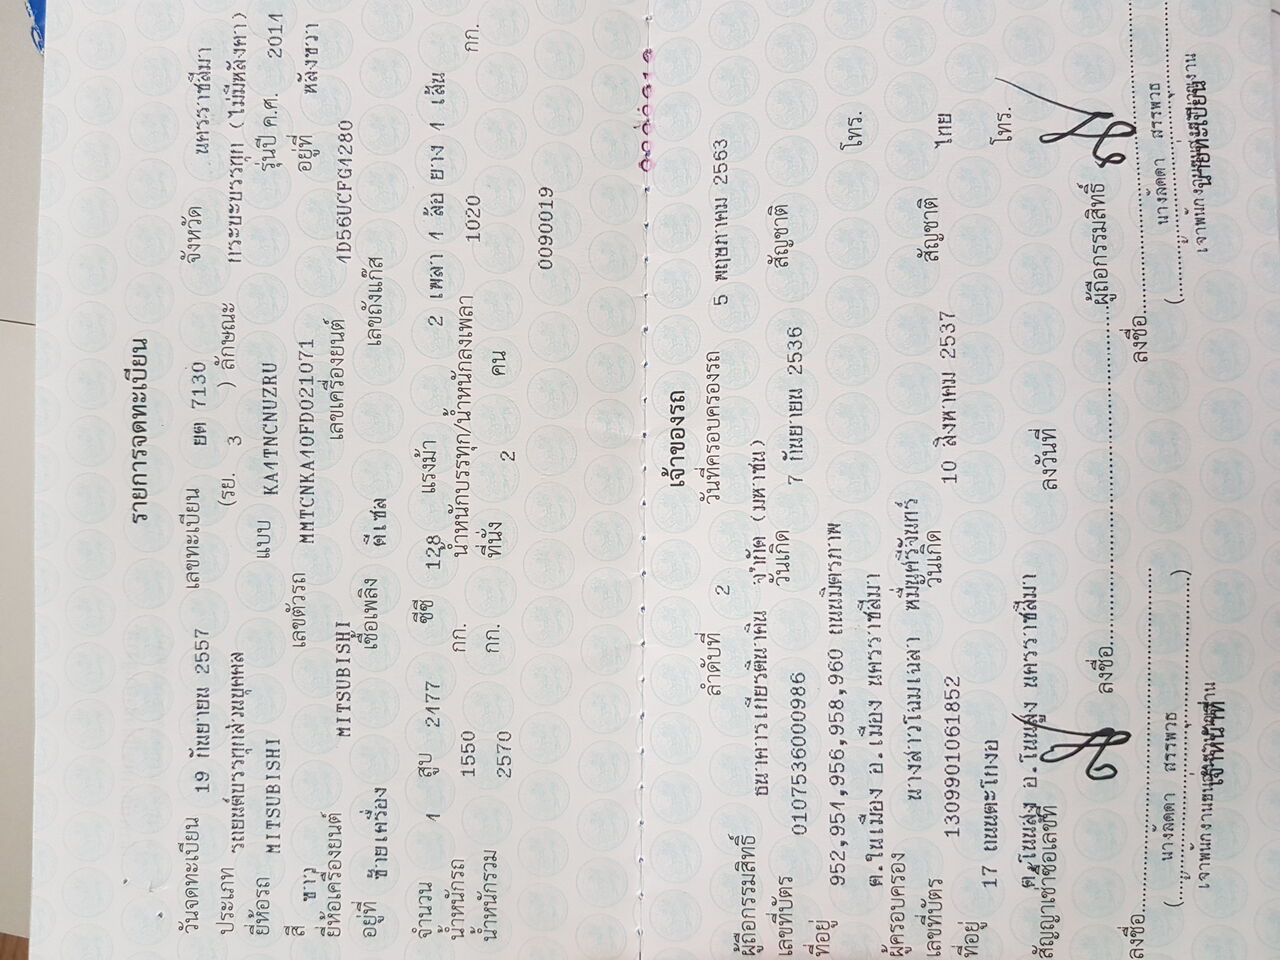 รายการจดทะเบียน
วันจดทะเบียน 19 กันยายน 2557 เลขทะเบียน ยต 7130 จังหวัด นครราชสีมา
ประเภท รถยนต์บรรทุกส่วนบุคคล (รย. 3 ) ลักษณะ กระบะบรรทุก (ไม่มีหลังคา)
ยี่ห้อรถ MITSUBISHI แบบ KA1TNCNUZRU รุ่นปี ค.ศ. 2014
สี ขาว เลขตัวรถ MMTCNKA10FD021071 อยู่ที่ หลังขวา
ยี่ห้อเครื่องยนต์ MITSUBISHI เลขเครื่องยนต์ 4D56UCFG4280
อยู่ที่ ซ้ายเครื่อง เชื้อเพลิง ดีเซล เลขถังแก๊ส
จำนวน 4 สูบ 2477 ซีซี 128 แรงม้า 2 เพลา 4 ล้อ ยาง 4 เส้น
น้ำหนักรถ 1550 กก. น้ำหนักบรรทุก/น้ำหนักลงเพลา 1020 กก.
น้ำหนักรวม 2570 กก. ที่นั่ง 2 คน
0090019
เจ้าของรถ
ลำดับที่ 2 วันที่ครอบครองรถ 5 พฤษภาคม 2563
ผู้ถือกรรมสิทธิ์ ธนาคารเกียรตินาคิน จำกัด (มหาชน)
เลขที่บัตร 0107536000986 วันเกิด 7 กันยายน 2536 สัญชาติ
ที่อยู่ 952,954,956,958,960 ถนนมิตรภาพ
ต.ในเมือง อ.เมือง นครราชสีมา โทร.
ผู้ครอบครอง นางสาวโฉมเฉลา หมื่นศรีจันทร์
เลขที่บัตร 1309901061852 วันเกิด 10 สิงหาคม 2537 สัญชาติ ไทย
ที่อยู่ 17 ถนนตะโกงอ
ต.โนนสูง อ.โนนสูง นครราชสีมา โทร.
สัญญาเช่าซื้อเลขที่ ลงวันที่
ลงชื่อ ผู้ถือกรรมสิทธิ์
ลงชื่อ ลงชื่อ
( นางลัดดา สรรพวุธ ) ( นางลัดดา สรรพวุธ
เจ้าหน้าที่ นายทะเบียน